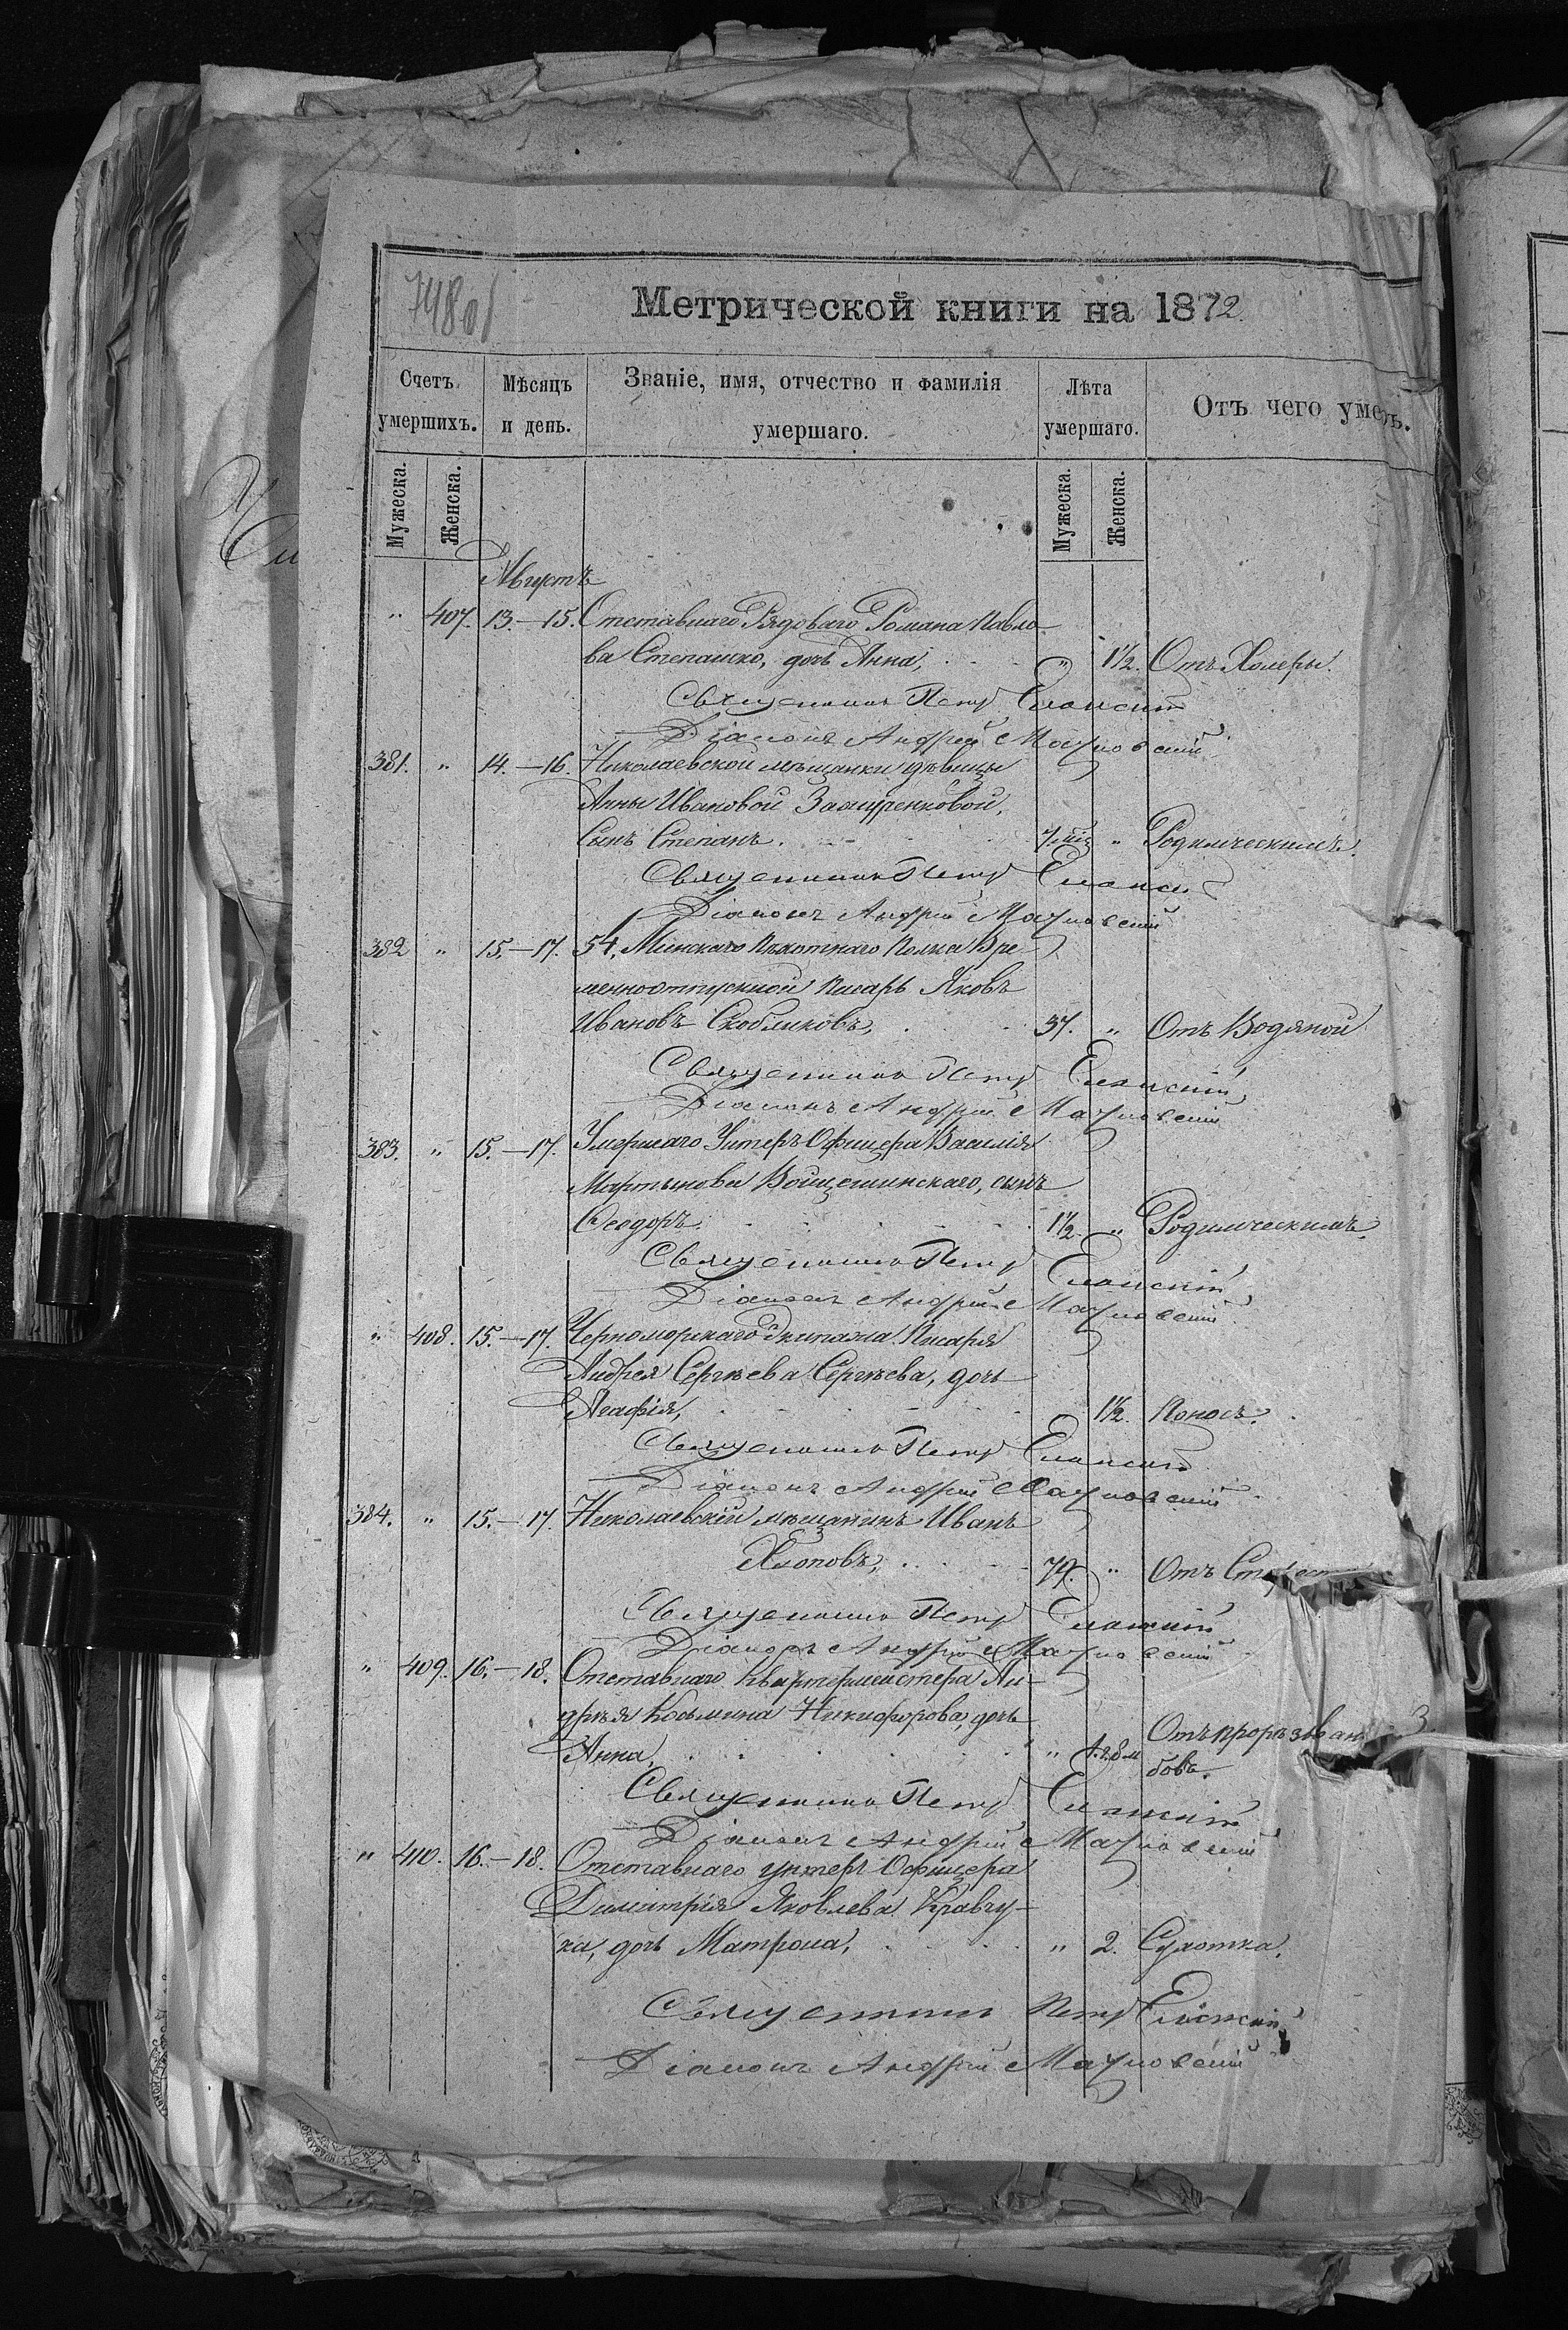 Метрической книги на 1872.
Счетъ умершихъ.
Мѣсяцъ и день.
Званіе, имя, отчество и фамилія умершаго.
Лѣта умершаго.
Отъ чего умеръ.
Мужеска.
Женска.
Мужеска.
Женска.
Августъ
" 407. 13.–15. Отставнаго Рядоваго Романа Павло-
ва Степашко, дочь Анна, " 1½. Отъ Холеры.
Священникъ Петръ Еланскій
Діаконъ Андрей
381. " 14.–16. Николаевской мѣщанки дѣвицы
Анны Ивановой
Сынъ Степанъ. 7 мѣс " Родимческимъ.
Священникъ Петръ Еланскій
Діаконъ Андрей
382 " 15.–17. 54, Минскаго Пѣхотнаго Полка Вре
менноотпускной Писарь Яковъ
Ивановъ Скобликовъ, 37. " Отъ Водяной
Священникъ Петръ Еланскій
Діаконъ Андрей
383. " 15.–17. Умершаго Унтеръ Офицера Василія
Мартынова сынъ
Ѳеодоръ. 1½. " Родимческимъ.
Священникъ Петръ Еланскій
Діаконъ Андрей
" 408. 15.–17. Черноморскаго Экипажа Писаря
Андрея Сергѣева Сергѣева, дочь
Агафія, 1½. Поносъ.
Священникъ Петръ Еланскій
Діаконъ Андрей
384. " 15.–17. Николаевскій мѣщанинъ Иванъ
Хлоповъ, 79. " Отъ
Священникъ Петръ Еланскій
Діаконъ Андрей
" 409. 16.–18. Отставнаго Квартермейстера Ан-
дрѣя Косьмина Никифорова, дочь
Анна. " 1 г. 8 м Отъ прорѣзв зу
бовъ.
Священникъ Петръ Еланскій
Діаконъ Андрей
" 410. 16.–18. Отставнаго унтеръ Офицера
Димитрія Яковлева Кравчу-
ка, дочь Матрона, " 2. Сухотка.
Священникъ Петръ Еланскій
Діаконъ Андрей